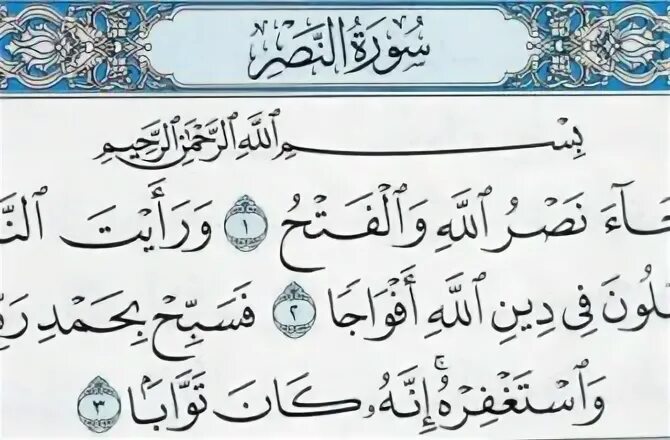 سُورَةُ النَّصْرِ
بِسْمِ اللَّهِ الرَّحْمَٰنِ الرَّحِيمِ
ـَآءَ نَصْرُ ٱللَّهِ وَٱلْفَتْحُ ١ وَرَأَيْتَ ٱلنَّـ
ـلُونَ فِى دِينِ ٱللَّهِ أَفْوَاجًا ٢ فَسَبِّحْ بِحَمْدِ رَبِّـ
وَٱسْتَغْفِرْهُ ۚ إِنَّهُۥ كَانَ تَوَّابًۢا ٣